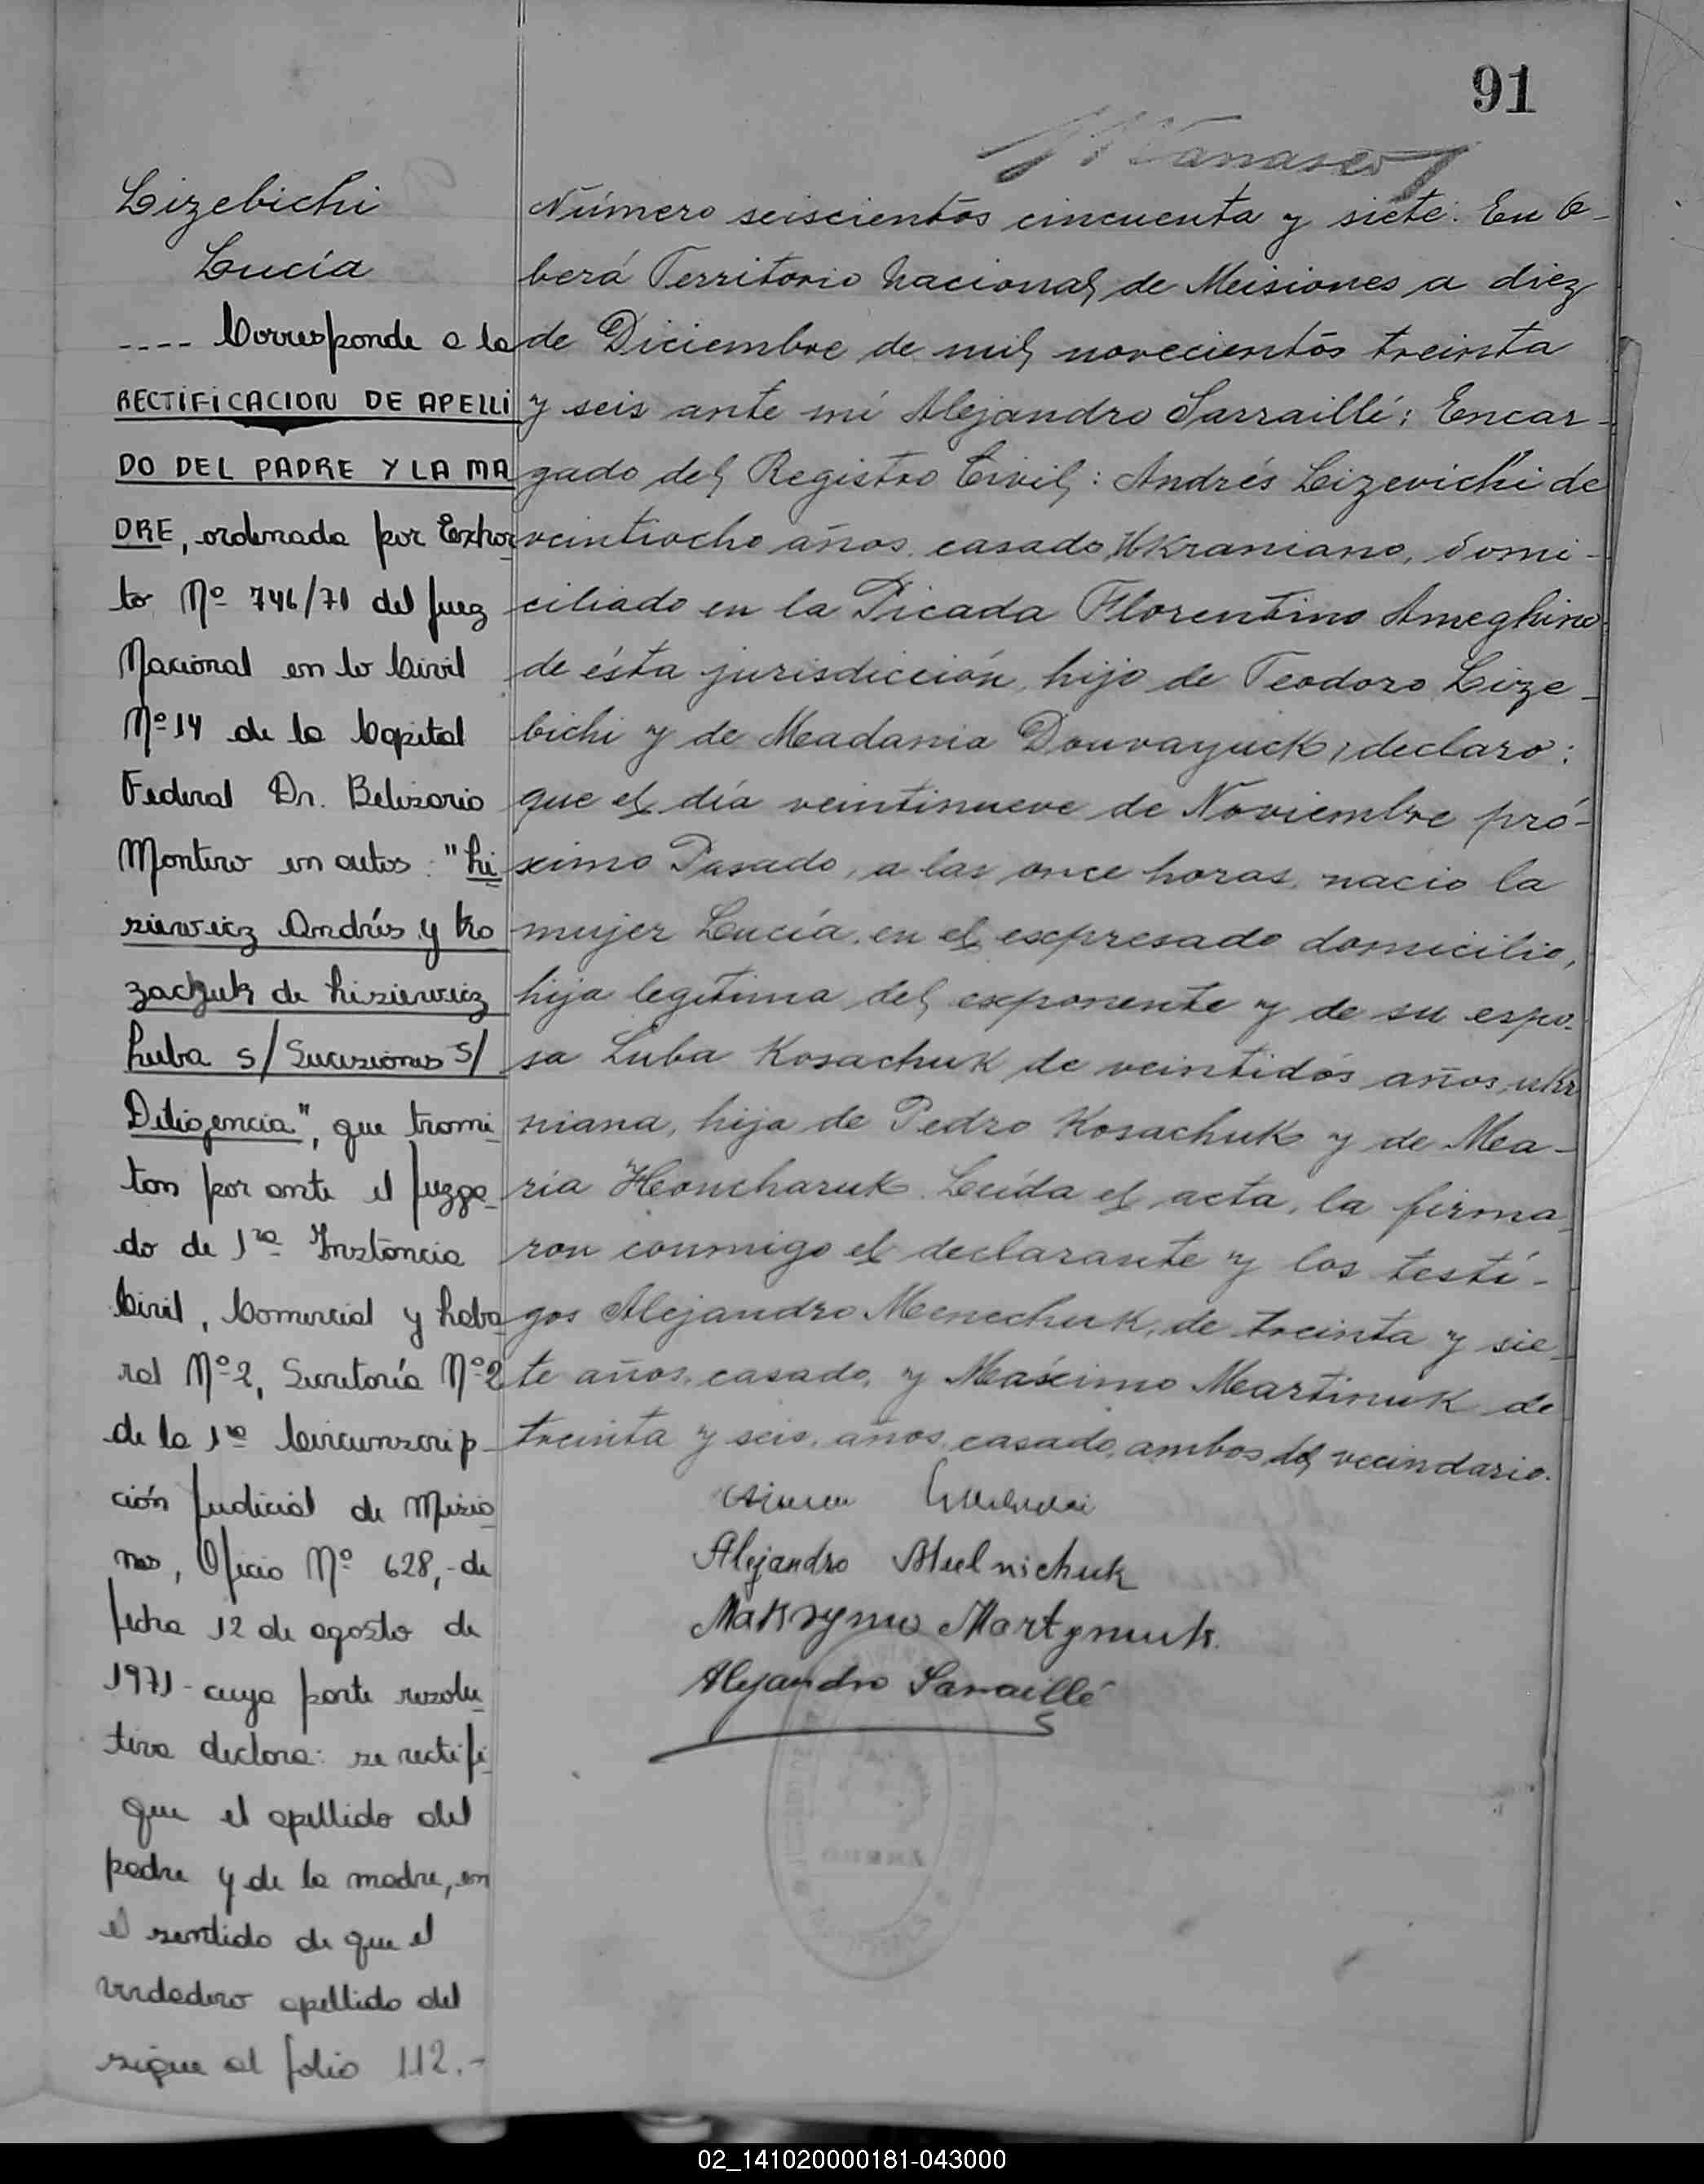 91
Lizebichi
Lucía
---- Corresponde a la
RECTIFICACION DE APELLI
DO DEL PADRE Y LA MA
DRE, ordenada por Exhor
to Nº 746/71 del Juez
Nacional en lo Civil
Nº 14 de la Capital
Federal Dr. Belisario
Montero en autos: "Li
siewicz Andrés y Ko
zaczuk de Lisiewicz
Luba s/ Sucesiones s/
Diligencia", que trami
tan por ante el Juzga
do de 1ra Instancia
Civil, Comercial y Labo
ral Nº 2, Secretaría Nº 2
de la 1ra Circunscrip
ción Judicial de Misio
nes, Oficio Nº 628,- de
fecha 12 de agosto de
1971- cuya parte resolu
tiva declara: se rectifi
que el apellido del
padre y de la madre, en
el sentido de que el
verdadero apellido del
sigue al folio 112.-
Número seiscientos cincuenta y siete: En O-
berá Territorio Nacional de Misiones a diez
de Diciembre de mil novecientos treinta
y seis ante mí Alejandro Sarraillé: Encar-
gado del Registro Civil: Andrés Lizevichi de
veintiocho años casado, Ukraniano, domi-
ciliado en la Picada Florentino Ameghino
de ésta jurisdicción, hijo de Teodoro Lize-
bichi y de Madania Douvayuck, declaro:
que el día veintinueve de Noviembre pró-
ximo Pasado, a las once horas, nacio la
mujer Lucía, en el expresado domicilio,
hija legítima del exponente y de su espo-
sa Luba Kosachuk de veintidós años, ukra
niana, hija de Pedro Kosachuk y de Ma-
ria Honcharuk. Leída el acta, la firma-
ron conmigo el declarante y los testi-
gos Alejandro Menechuk, de treinta y sie-
te años, casado, y Máximo Martinuk de
treinta y seis, años, casado, ambos del vecindario.
Alejandro Melnichuk
Maksymo Martyniuk.
Alejandro Sarraillé
02_141020000181-043000